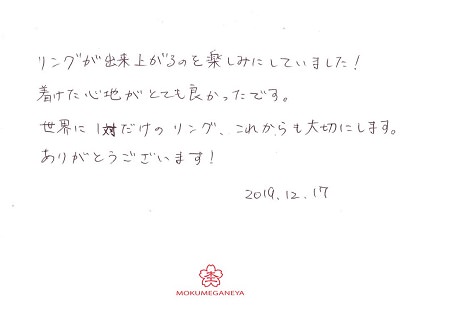 リングが出来上がるのを楽しみにしていました！
着けた心地がとても良かったです。
世界に1対だけのリング、これからも大切にします。
ありがとうございます！
2019.12.17
MOKUMEGANEYA